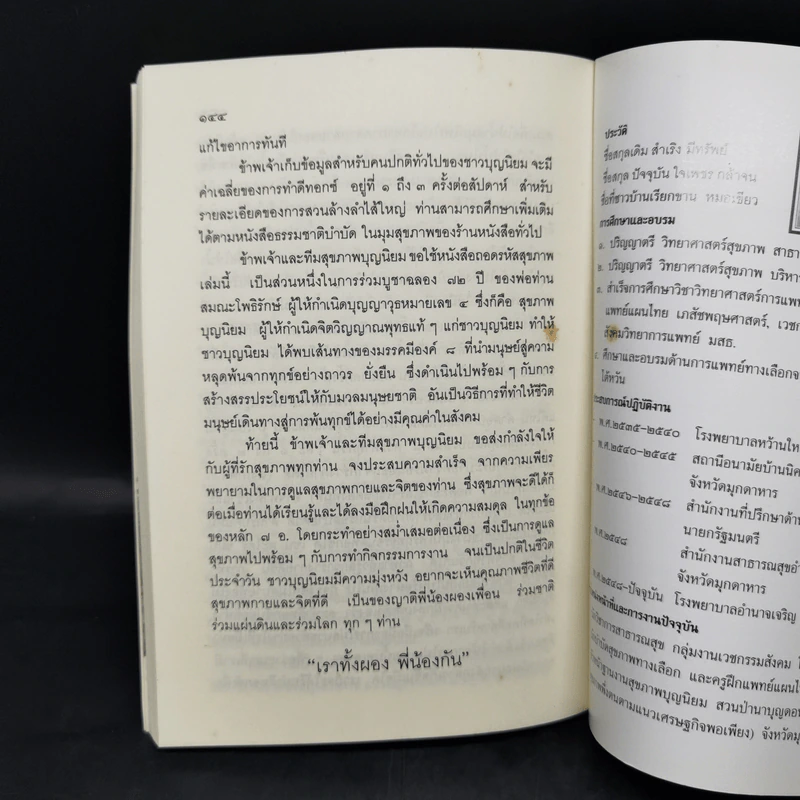 ๑๔๔
แก้ไขอาการทันที
ข้าพเจ้าเก็บข้อมูลสำหรับคนปกติทั่วไปของชาวบุญนิยม จะมี
ค่าเฉลี่ยของการทำดีทอกซ์ อยู่ที่ ๑ ถึง ๓ ครั้งต่อสัปดาห์ สำหรับ
รายละเอียดของการสวนล้างลำไส้ใหญ่ ท่านสามารถศึกษาเพิ่มเติม
ได้ตามหนังสือธรรมชาติบำบัด ในมุมสุขภาพของร้านหนังสือทั่วไป
ข้าพเจ้าและทีมสุขภาพบุญนิยม ขอใช้หนังสือถอดรหัสสุขภาพ
เล่มนี้ เป็นส่วนหนึ่งในการร่วมบูชาฉลอง ๗๒ ปี ของพ่อท่าน
สมณะโพธิรักษ์ ผู้ให้กำเนิดบุญญาวุธหมายเลข ๔ ซึ่งก็คือ สุขภาพ
บุญนิยม ผู้ให้กำเนิดจิตวิญญาณพุทธแท้ ๆ แก่ชาวบุญนิยม ทำให้
ชาวบุญนิยม ได้พบเส้นทางของมรรคมีองค์ ๘ ที่นำมนุษย์สู่ความ
หลุดพ้นจากทุกข์อย่างถาวร ยั่งยืน ซึ่งดำเนินไปพร้อม ๆ กับการ
สร้างสรรประโยชน์ให้กับมวลมนุษยชาติ อันเป็นวิธีการที่ทำให้ชีวิต
มนุษย์เดินทางสู่การพ้นทุกข์ได้อย่างมีคุณค่าในสังคม
ท้ายนี้ ข้าพเจ้าและทีมสุขภาพบุญนิยม ขอส่งกำลังใจให้
กับผู้ที่รักสุขภาพทุกท่าน จงประสบความสำเร็จ จากความเพียร
พยายามในการดูแลสุขภาพกายและจิตของท่าน ซึ่งสุขภาพจะดีได้ก็
ต่อเมื่อท่านได้เรียนรู้และได้ลงมือฝึกฝนให้เกิดความสมดุล ในทุกข้อ
ของหลัก ๗ อ. โดยกระทำอย่างสม่ำเสมอต่อเนื่อง ซึ่งเป็นการดูแล
สุขภาพไปพร้อม ๆ กับการทำกิจกรรมการงาน จนเป็นปกติในชีวิต
ประจำวัน ชาวบุญนิยมมีความมุ่งหวัง อยากจะเห็นคุณภาพชีวิตที่ดี
สุขภาพกายและจิตที่ดี เป็นของญาติพี่น้องผองเพื่อน ร่วมชาติ
ร่วมแผ่นดินและร่วมโลก ทุก ๆ ท่าน
“เราทั้งผอง พี่น้องกัน”
ประวัติ
ชื่อสกุลเดิม สำเริง มีทรัพย์
ชื่อสกุล ปัจจุบัน ใจเพชร กล้าจน
ชื่อที่ชาวบ้านเรียกขาน หมอเขียว
การศึกษาและอบรม
๑. ปริญญาตรี วิทยาศาสตร์สุขภาพ สาธา
๒. ปริญญาตรี วิทยาศาสตร์สุขภาพ บริหา
๓. สำเร็จการศึกษาวิชาวิทยาศาสตร์การแพท
แพทย์แผนไทย เภสัชพฤษศาสตร์, เวชก
สังคมวิทยาการแพทย์ มสธ.
ศึกษาและอบรมด้านการแพทย์ทางเลือกจ
ไต้หวัน
ะสบการณ์ปฏิบัติงาน
พ.ศ.๒๕๓๕-๒๕๔๐ โรงพยาบาลหว้านให
พ.ศ.๒๕๔๐-๒๕๔๕ สถานีอนามัยบ้านนิค
จังหวัดมุกดาหาร
พ.ศ.๒๕๔๖-๒๕๔๘ สำนักงานที่ปรึกษาด้า
นายกรัฐมนตรี
พ.ศ.๒๕๔๘ สำนักงานสาธารณสุขอำ
จังหวัดมุกดาหาร
พ.ศ.๒๕๔๘-ปัจจุบัน โรงพยาบาลอำนาจเจริญ
หน้าที่และการงานปัจจุบัน
วิชาการสาธารณสุข กลุ่มงานเวชกรรมสังคม
บำบัดสุขภาพทางเลือก และครูฝึกแพทย์แผนไ
ฐานงานสุขภาพบุญนิยม สวนป่านาบุญดอน
พึ่งตนตามแนวเศรษฐกิจพอเพียง) จังหวัดมุ